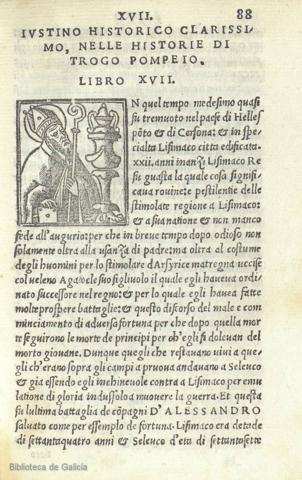 XVII. 88
IVSTINO HISTORICO CLARISSI
MO, NELLE HISTORIE DI
TROGO POMPEIO.
LIBRO XVII.
N quel tempo medesimo quasi
fu tremuoto nel paese di Helles
põto & di Cersona; & in spe
cialta Lisimaco citta edificata
.xxii. anni inanzi Lisimaco Re
fu guasta la quale cosa signifi
caua rouine: pestilentie delle
stimolate regione a Lisimaco:
& a sua natione & non manco
fede all'augurio: per che in breue tempo dopo odioso non
solamente oltra alla usanza di padre: ma oltra al costume
degli huomini per lo stimolare d'Arsyrice matregna uccise
col veleno Agatocle suo figliuolo il quale egli haueua ordi
nato successore nel regno: & per lo quale egli hauea fatte
molte prospere battaglie: & questo discorso del male e com
minciamento di aduersa fortuna per che dopo quella mor
te seguirono le morte de principi per oh'egli si doleuan del
morto giouane. Dunque quegli che restauano uiui a que
gli ch'erano sopra gli campi a pruoua andauano a Seleuco
& gia essendo egli inchineuole contra a Lisimaco per emu
latione di gloria in dussolo a muouere la guerra. Et questa
fu lultima battaglia de cõpagni D'ALESSANDRO
saluato come per essemplo de fortuna. Lisimaco era detade
di settantaquatro anni & Seleuco d'eta di settantasette
Biblioteca de Galicia